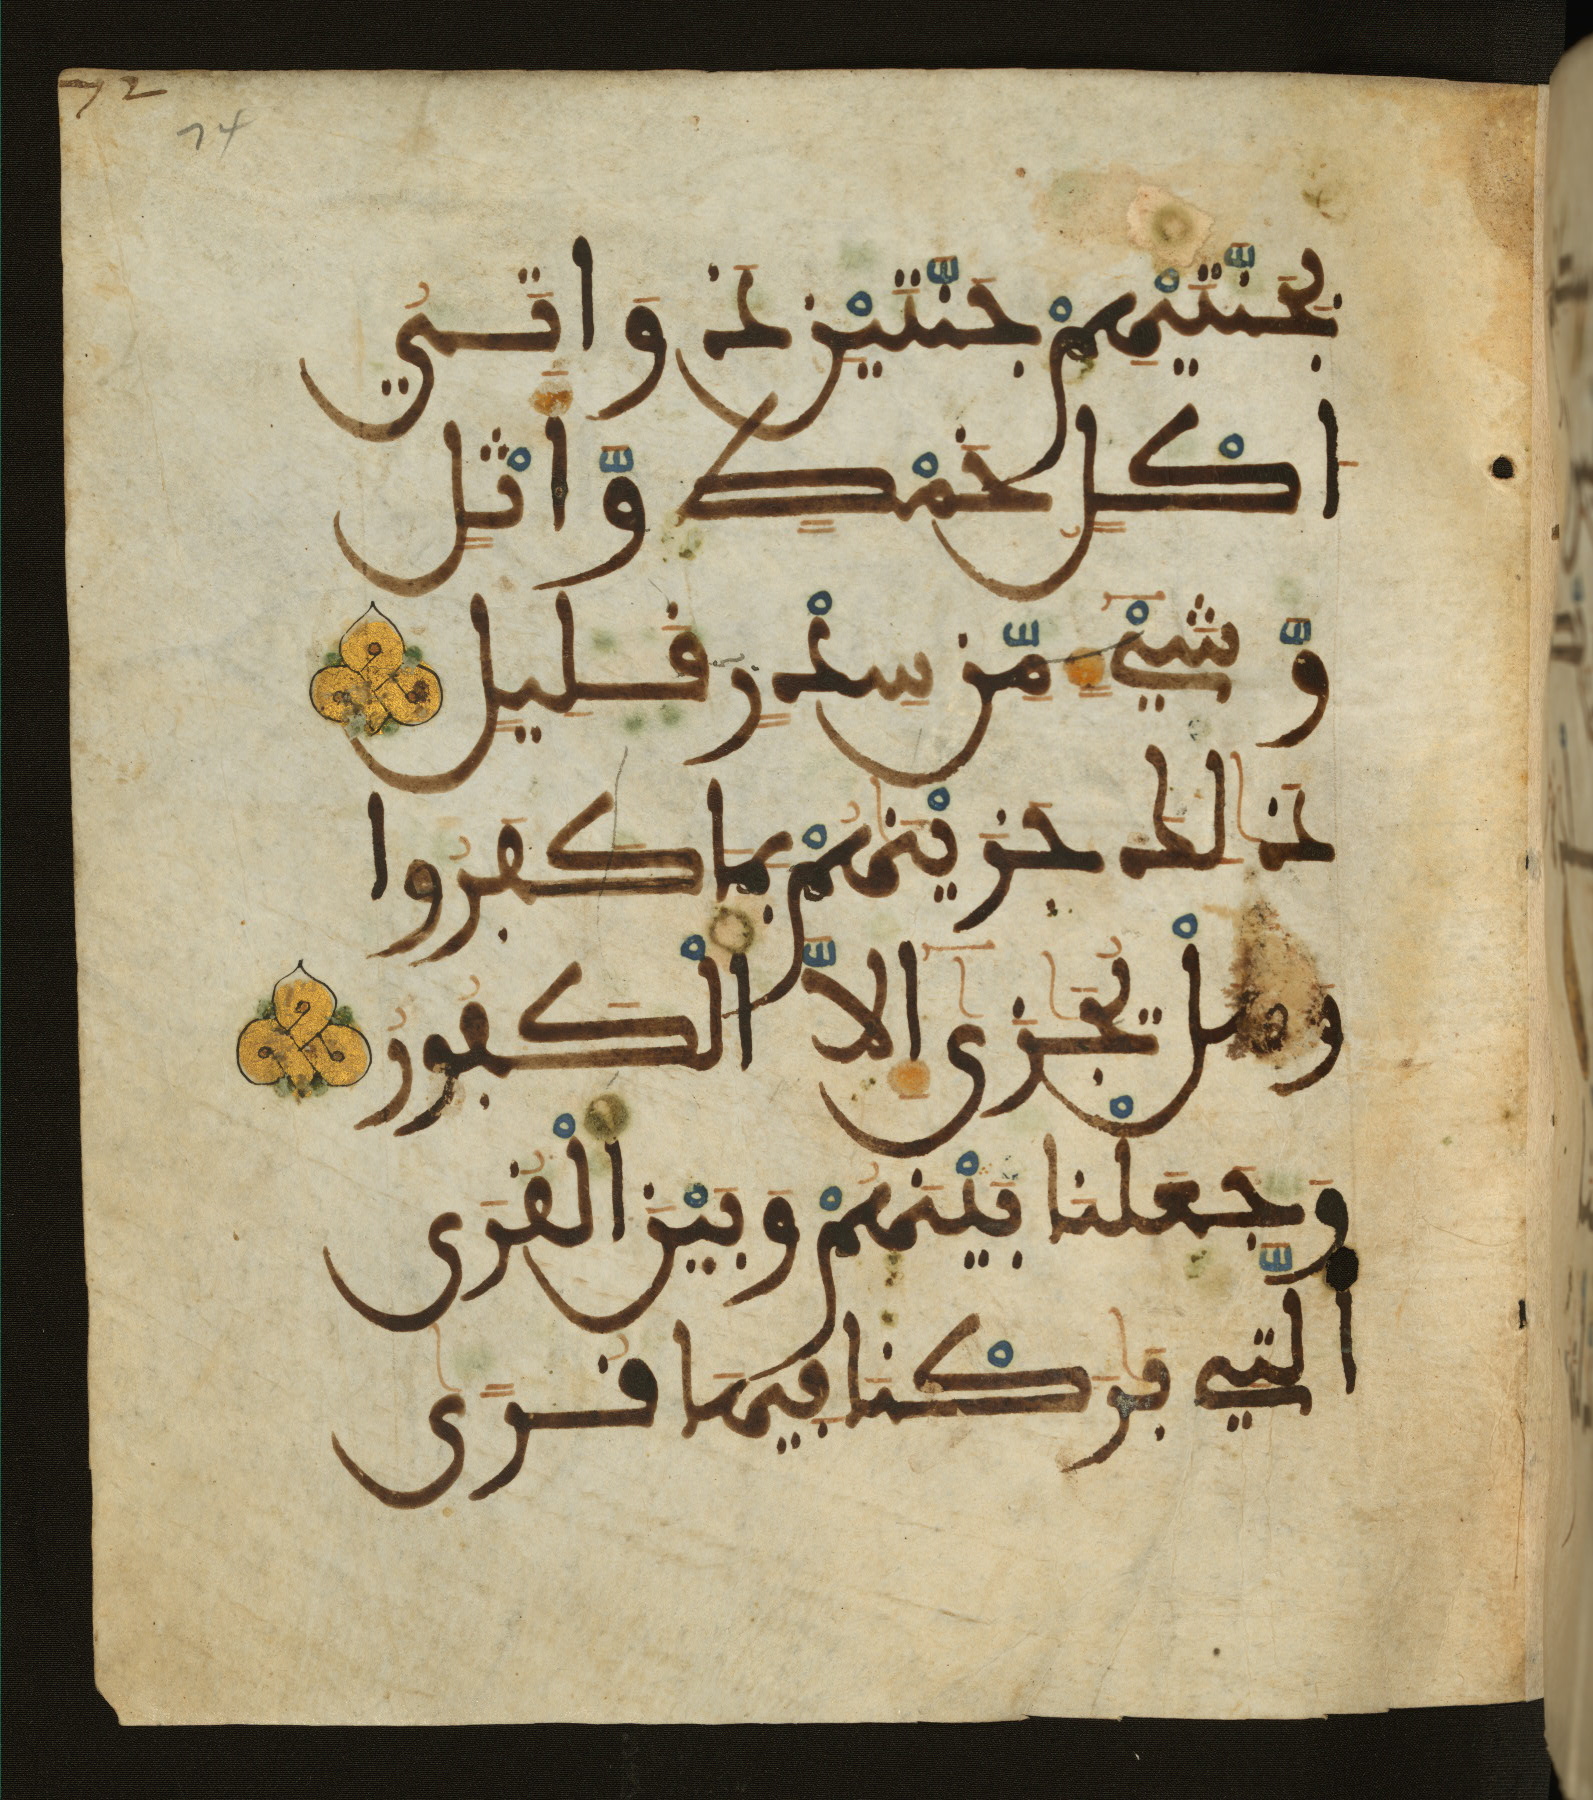 72
74
بِجَنَّتَيْهِمْ جَنَّتَيْنِ ذَوَاتَيُ
اُكْلٍ خَمْطٍ وَّأَثْلٍ
وَّشَيْءٍ مِّن سِدْرٍ قَلِيلٍ
ذَٰلِكَ جَزَيْنَٰهُمْ بِمَا كَفَرُوا
وَهَلْ يُجَٰزَىٰ إِلَّا الْكَفُورُ
وَجَعَلْنَا بَيْنَهُمْ وَبَيْنَ الْقُرَى
الَّتِي بَٰرَكْنَا فِيهَا قُرًى